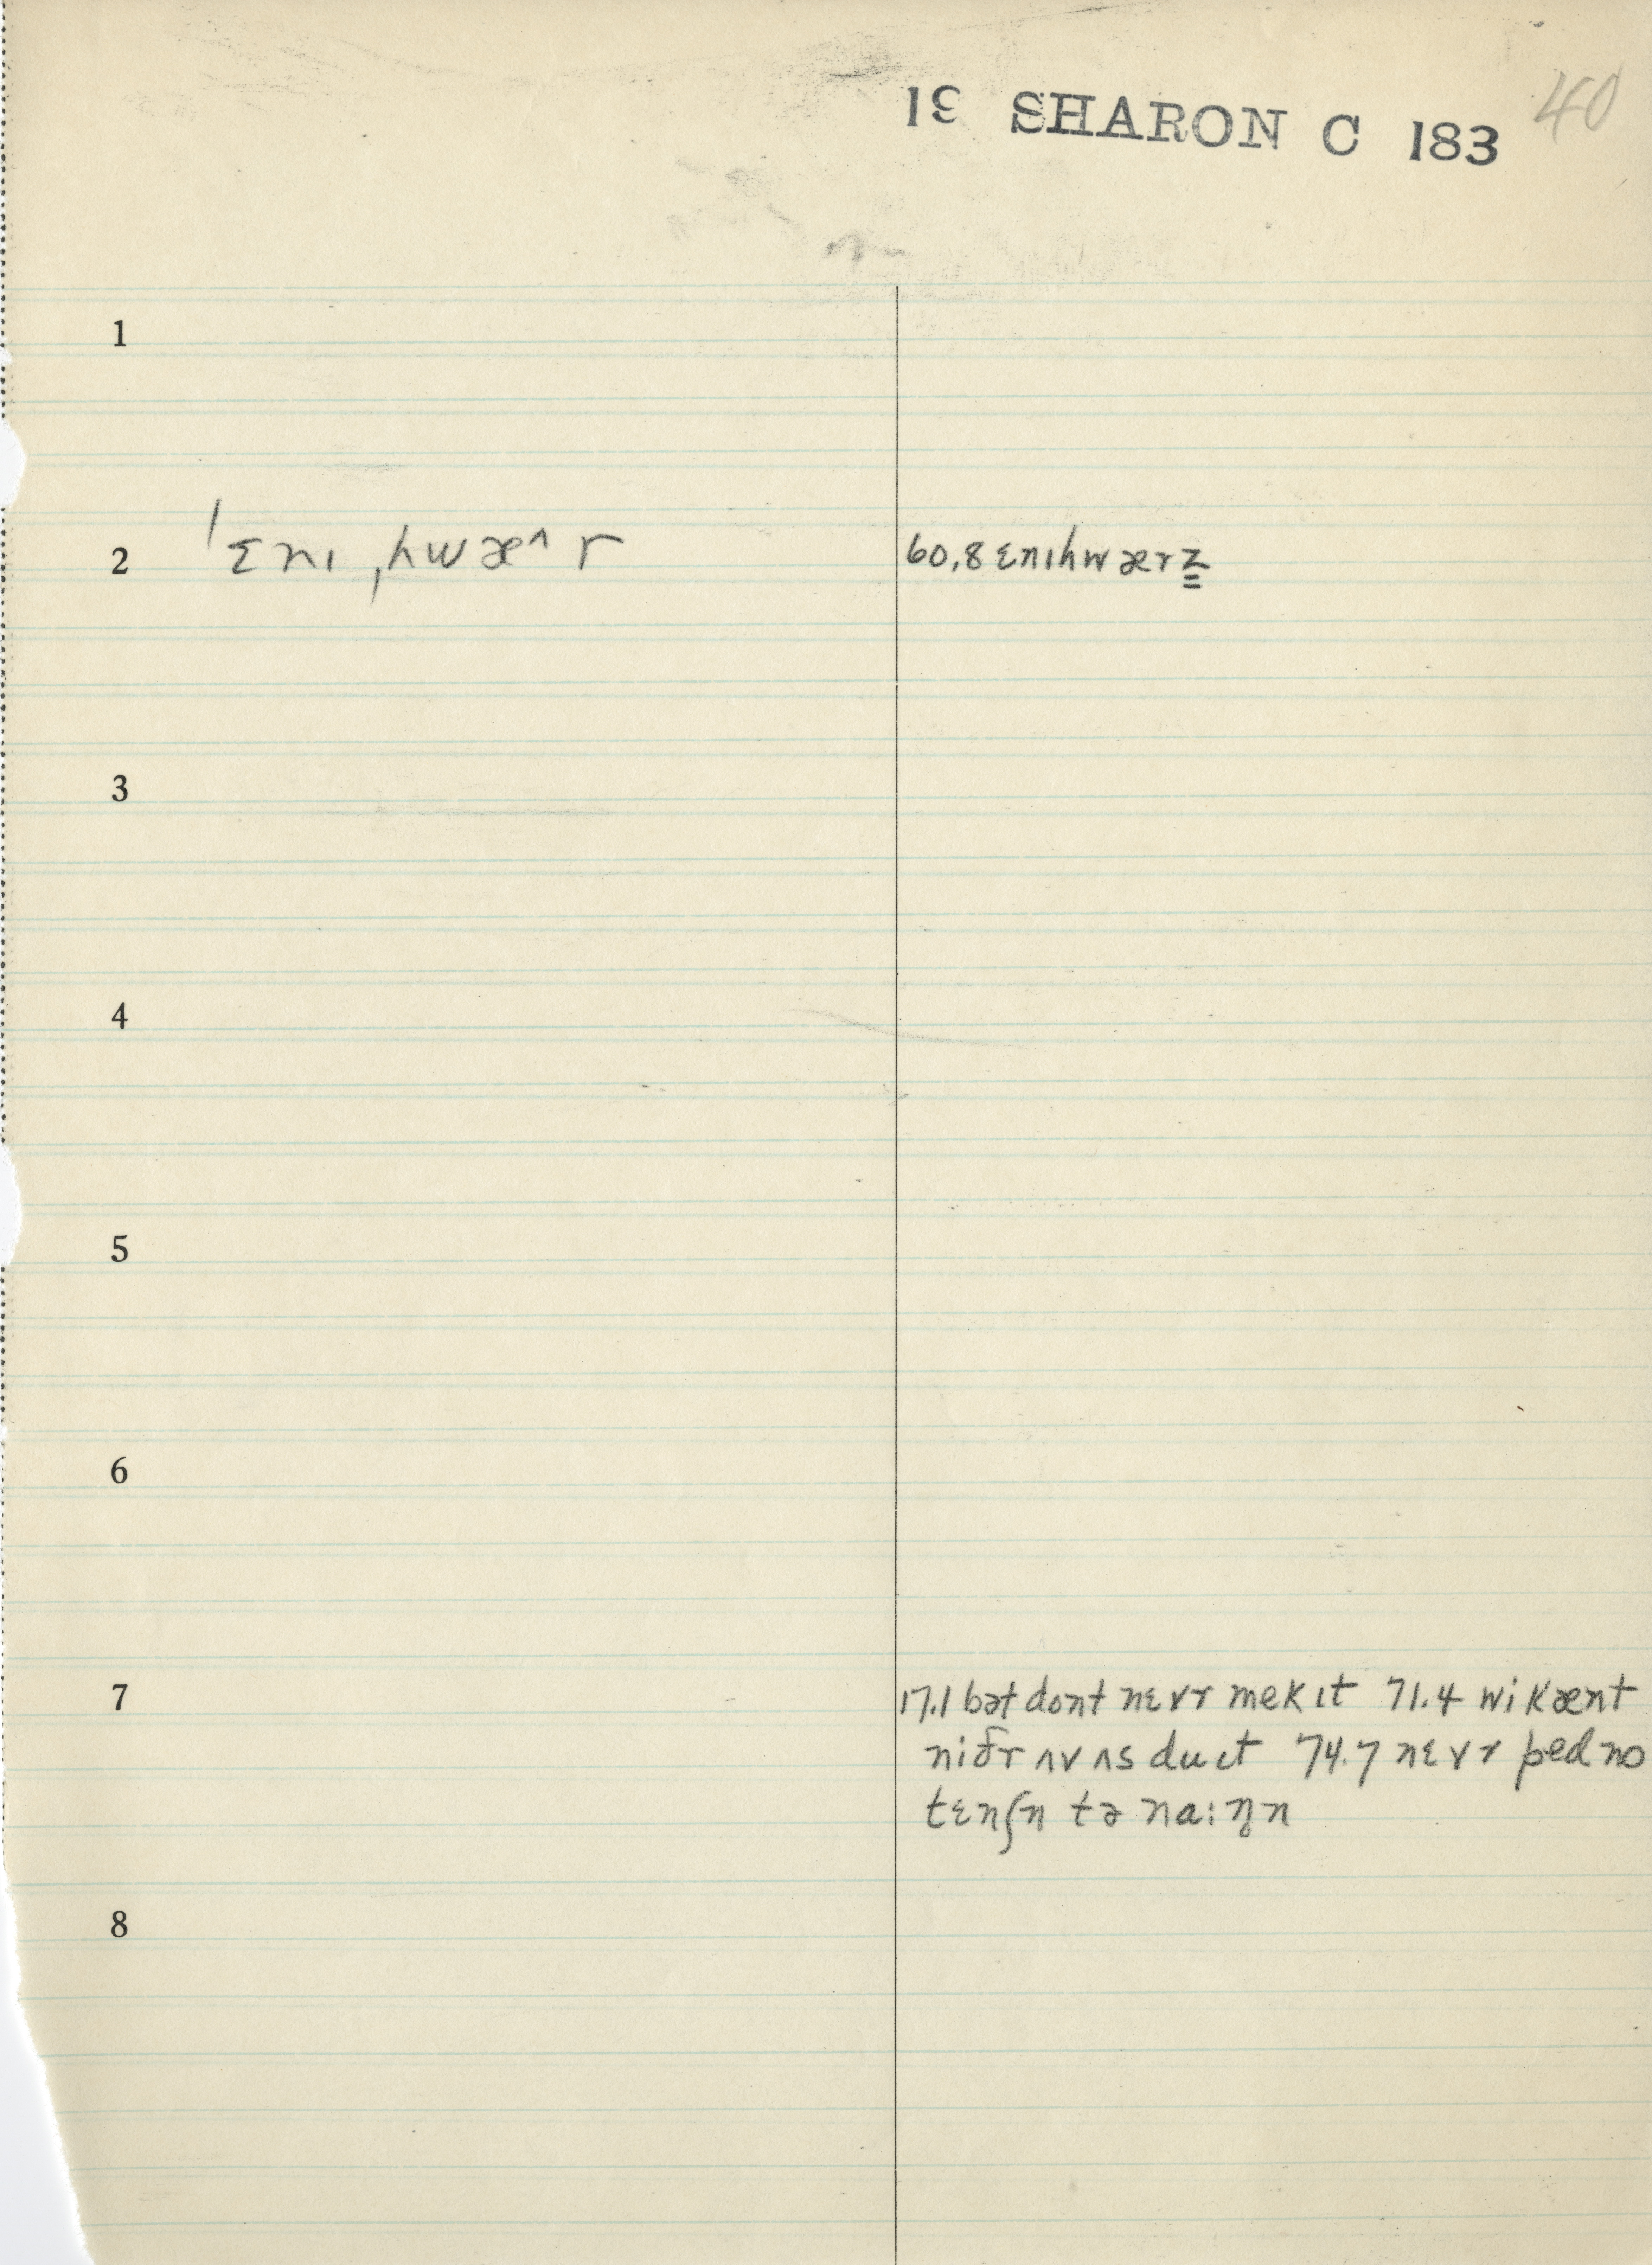 19 SHARON C 183 40
1
2 ˈɛnɪ ˌhwæ^ r 60.8 ɛnɪhwærz
3
4
5
6
7 17.1 bət dont nɛvr mek ɪt 71.4 wi kænt
niðr ʌv ʌs du ɪt 74.7 nɛvr ped no
tɛnʃn tə na:ŋn
8